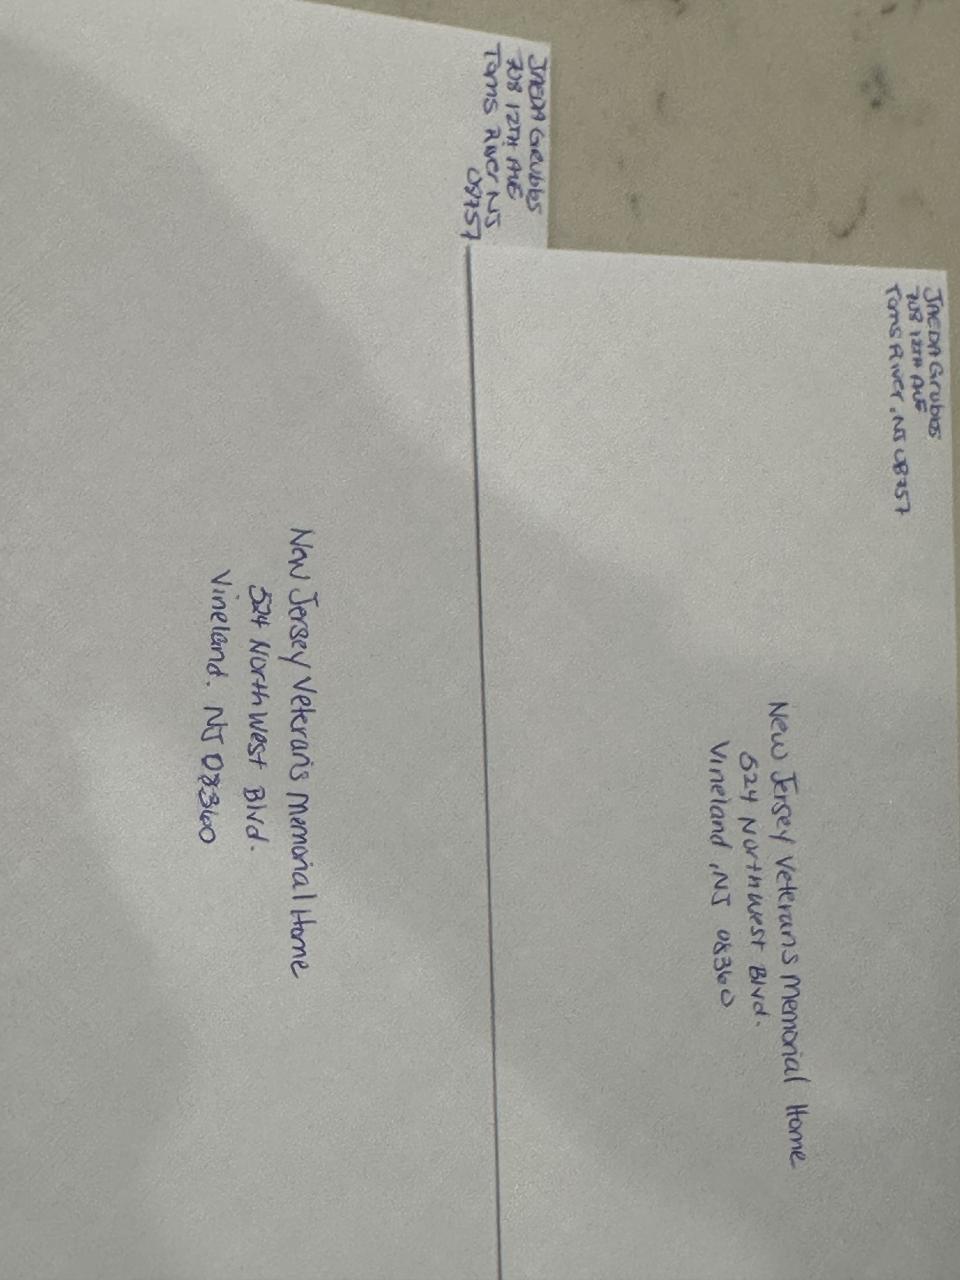 JAEDA Grubbs
708 12TH AVE
Toms River NJ
08757
New Jersey Veterans Memorial Home
524 North West Blvd.
Vineland. NJ 08360
JAEDA Grubbs
708 12TH AVE
Toms River, NJ 08757
New Jersey Veterans Memorial Home
524 North West Blvd.
Vineland, NJ 08360